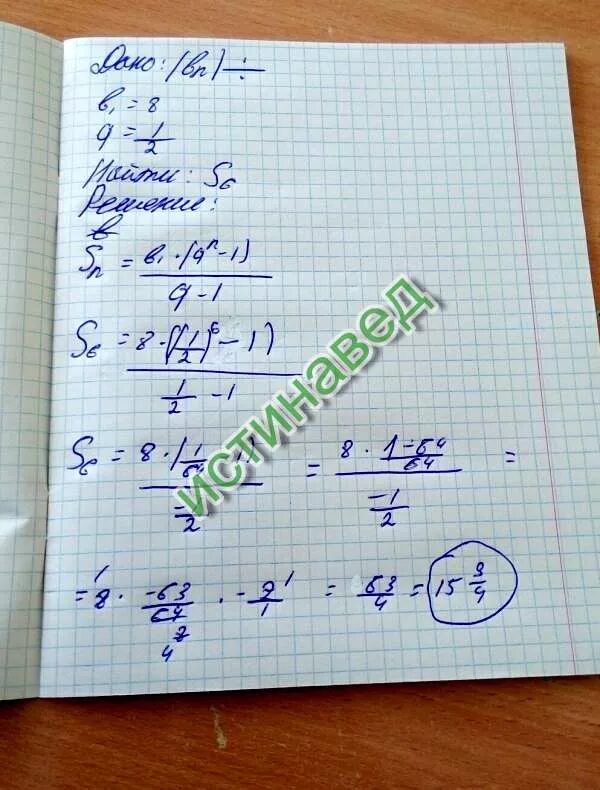 Дано: (bn) ÷
b₁ = 8
q = 1/2
Найти: S₆
Решение:
Sn = b₁ · (qⁿ - 1) / q - 1
S₆ = 8 · ((1/2)⁶ - 1) / 1/2 - 1
S₆ = 8 · (1/64 - 1) / -1/2 = 8 · 1-64/64 / -1/2 =
= 8 · -63/64 · -2/1 = 63/4 = 15 3/4
истинавед